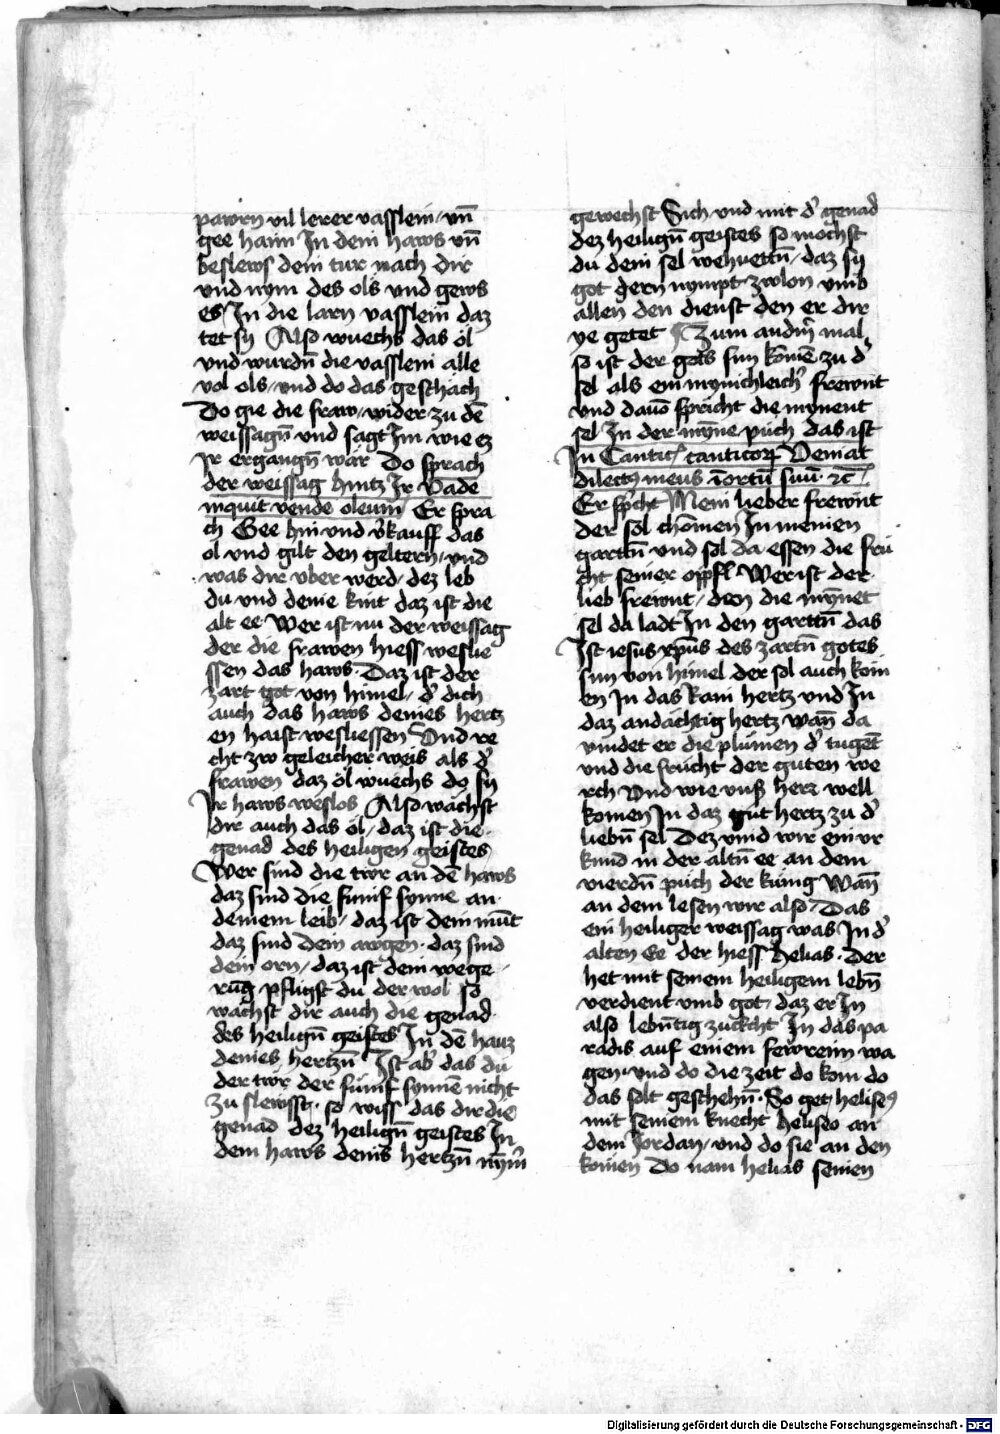 pawrn vil lerer vasslein / vn̄
gee haim In dein haws vn̄
beslews dein tur nach dir
vnd nym des ols vnd gews
es / In die larn vasslein daz
tet sy Also wuechs das ol
vnd wurdn̄ die vasslein alle
vol ols / vnd do das geschach
Do gie die fraw / wider zu dē
weissagn̄ vnd sagt Im wie ez
Ir ergangn̄ wär Do sprach
der weissag hintz Ir Vade
inquit vende oleum Er spra
ch Gee hin vnd v̓kauff das
ol vnd gilt den geltern / vnd
was dir vber werd / dez leb
du vnd deine kint daz ist die
alt ee Wer ist nu der weissag
der die frawen hiess weslie
ssen das haws · Daz ist der
zart got von himel / d̓ dich
auch das haws deines hertz
en haist wesliessen Vnd re
cht zw geleicher weis als d̓
frawen daz öl wuechs do sy
Ir haws weslos Also wachst
dir auch das öl / daz ist die
genad des heiligen geistes /
Wer sind die twr an dē haws
daz sind die funif synne an
deinem leib / daz ist dein mūt
daz sind dein awgen · daz sind
dein orn / daz ist dein wege
rūg pfligst du der wol so
wachst dir auch die genad
des heilign̄ geistes In dē hauz
deines hertzn̄ Ist ab̓ das du
der twr der fünf synnē nicht
zu slewsst · so wiss das dir die
genad dez heilign̄ geistes In
dem haws deins hertzn̄ nȳm̄
gewechst Sich vnd mit d̓ genad
dez heilign̄ geistes so mochst
du dein sel wehuettn̄ / daz sy
got gern nympt zwlon vmb
allen den dienst den er dir
ye getet ¶ Zum andn̄ mal
so ist der gots sun komē zu d̓
sel als ein mynichleich̓ frewnt
vnd dauō spricht die mynent
sel In der mȳne puch das ist
In Cantic̓ canticoꝝ Veniat
dilectꝰ meus ī ortū suū · ꝛc̄
Er sp̓cht Mein lieber frewnt
der sol chomen In meinen
gartn̄ vnd sol da essen die frü
cht seiner oppfl Wer ist der
lieb frewnt / den die mȳnet
sel da ladt In den garttn̄ das
Ist iesus xp̄us des zartn̄ gotes
sun von himel der sol auch kom
en In das kam hertz vnd In
daz andächtig hertz wan̄ da
vindet er die plümen d̓ tugēt
vnd die frucht der guten we
rch Vnd wie vnß herz well
komen In daz gut hertz zu d̓
liebn̄ sel Dez vind wir ein vr
kund in der altn̄ ee an dem
vierdn̄ püch der künig Wan̄
an dem lesen wir also / Das
ein heiliger weissag was In d̓
alten ee der hiess helias · Der
het mit seinem heiligem lebn̄
verdient vmb got / daz er In
also lebn̄tig zuckcht In das pa
radis auf einem fewreim wa
gen · vnd do die zeit do kom do
das solt geschehn̄ · So get heliseꝰ
mit seinem knecht heliseo an
dem Jordan / vnd do sie an den
komen Do nam helias seinen
Digitalisierung gefördert durch die Deutsche Forschungsgemeinschaft - DFG